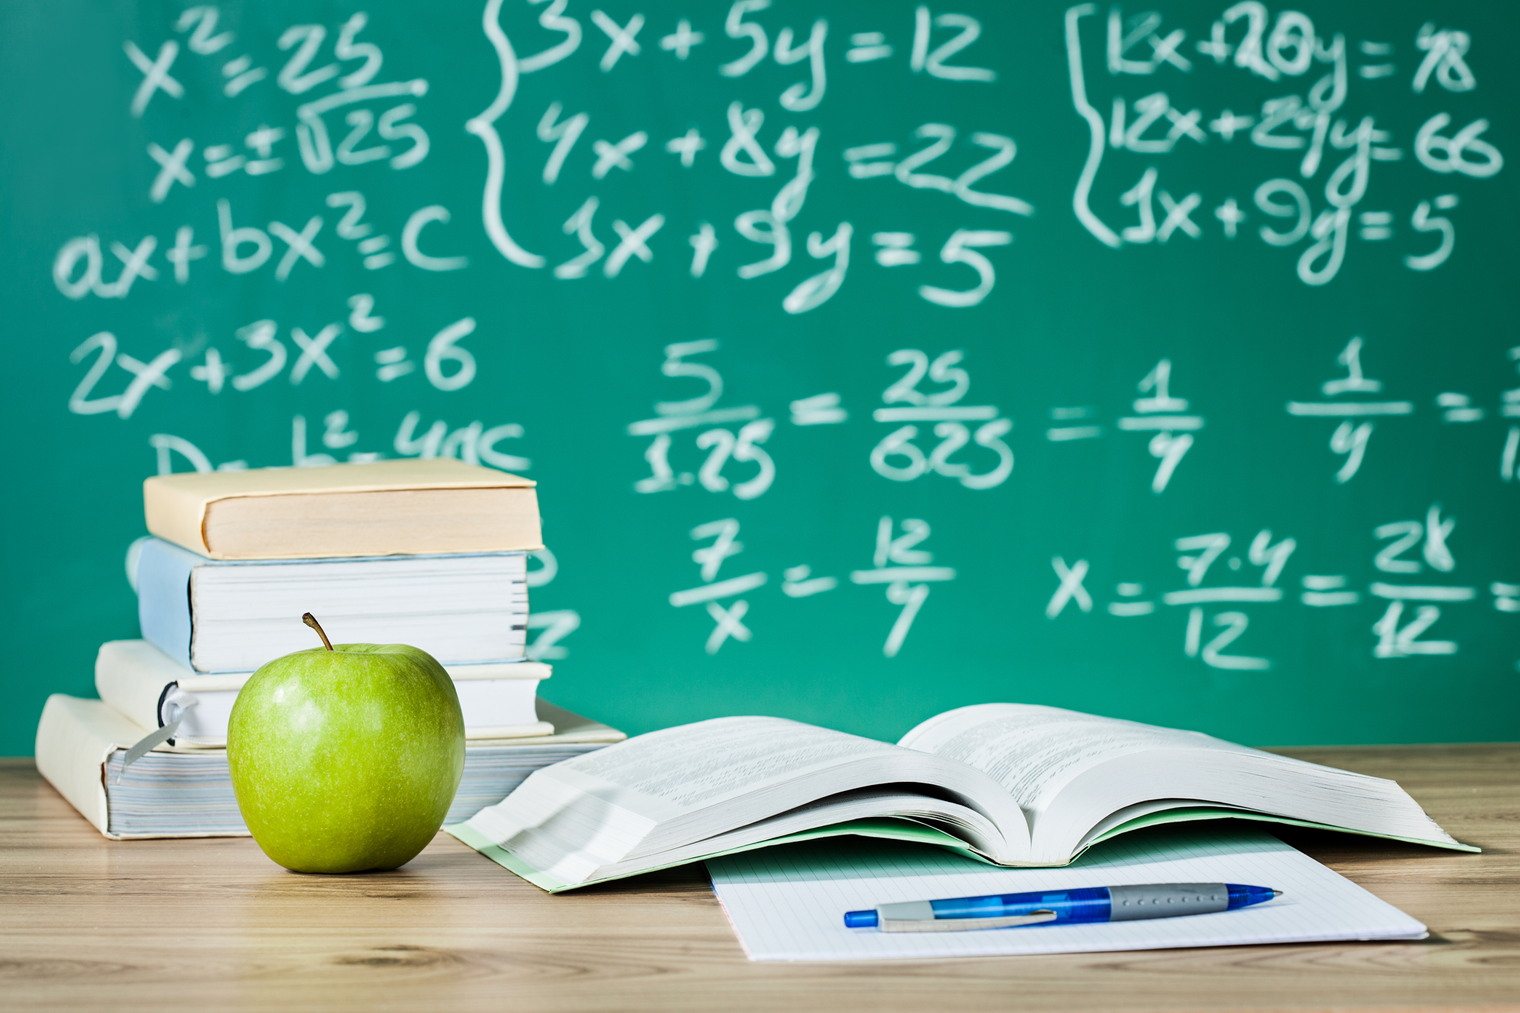 x² = 25
x = ± √25
ax + bx² = c
2x + 3x² = 6
D = b² - 4ac
3x + 5y = 12
4x + 8y = 22
1x + 9y = 5
12x + 20y = 48
12x + 24y = 66
1x + 9y = 5
5/1.25 = 25/625 = 1/4
1/4 =
7/x = 12/4
x = 7·4/12 = 28/12 =